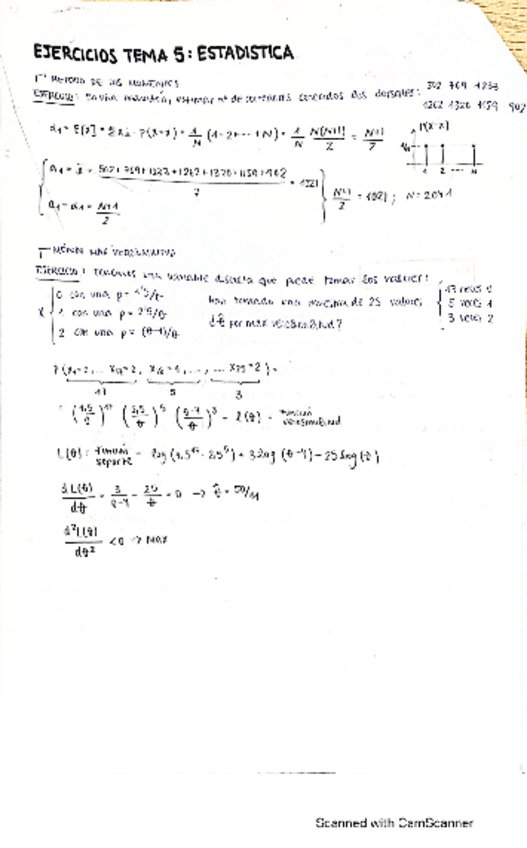 EJERCICIOS TEMA 5: ESTADISTICA
MÉTODO DE LOS MOMENTOS
EJERCICIO: En una maratón, estimar nº de corredores conocidos dos dorsales: 502 769 1233
1262 1320 1159 902
α₁ = E[X] = Σxᵢ · P(X=x) = 1/N (1+2+...+N) = 1/N N(N+1)/2 = N+1/2
P(X=x)
1/N
1 2 ... N
a₁ = x̄ = 502+769+1233+1262+1320+1159+902/7 = 1021
a₁ = α₁ = N+1/2
N+1/2 = 1021; N = 2041
MÉTODO MAX VEROSIMILITUD
EJERCICIO: Tenemos una variable discreta que puede tomar los valores:
x { 0 con una p = 1'5/θ
1 con una p = 2'5/θ
2 con una p = (θ-4)/θ
han tomado una muestra de 25 valores
¿θ̂ por max verosimilitud?
{ 17 veces 0
5 veces 1
3 veces 2
P(X₁=2, ... X₁₇=2, X₁₈=1, ..., ... X₂₅=2) =
17 5 3
= (1,5/θ)¹⁷ (2,5/θ)⁵ (θ-4/θ)³ = l(θ) = función verosimilitud
L(θ) = función soporte = log(1.5¹⁷ · 2.5⁵) + 3 log(θ-4) - 25 log(θ)
dL(θ)/dθ = 3/θ-4 - 25/θ = 0 → θ̂ = 50/11
d²L(θ)/dθ² < 0 → MAX
Scanned with CamScanner